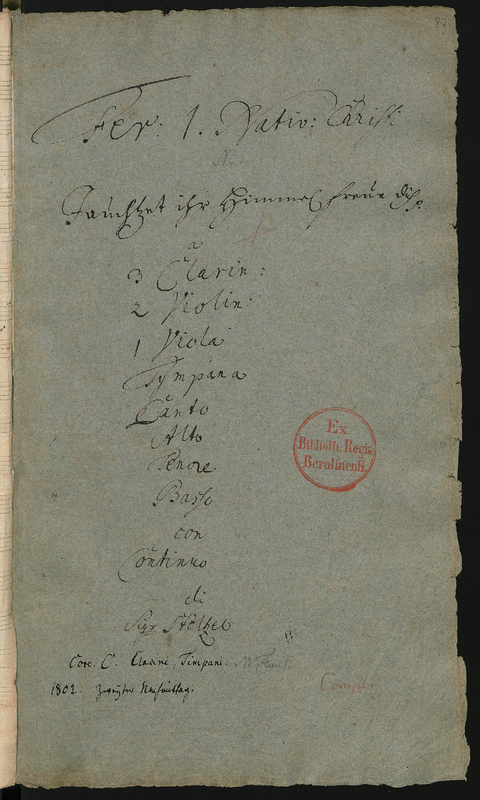 Fer: 1. Nativ: Christi
Jauchzet ihr Himmel freue dich p.
a
3 Clarin:
2 Violin:
1 Viola
Tympana
Canto
Alto
Tenore
Basso
con
Continuo
di
Sigr Stöltzel
Coro. C. Clarini, Timpani.
1802. zweyter
Ex
Biblioth. Regia
Berolinensi.
Compl.